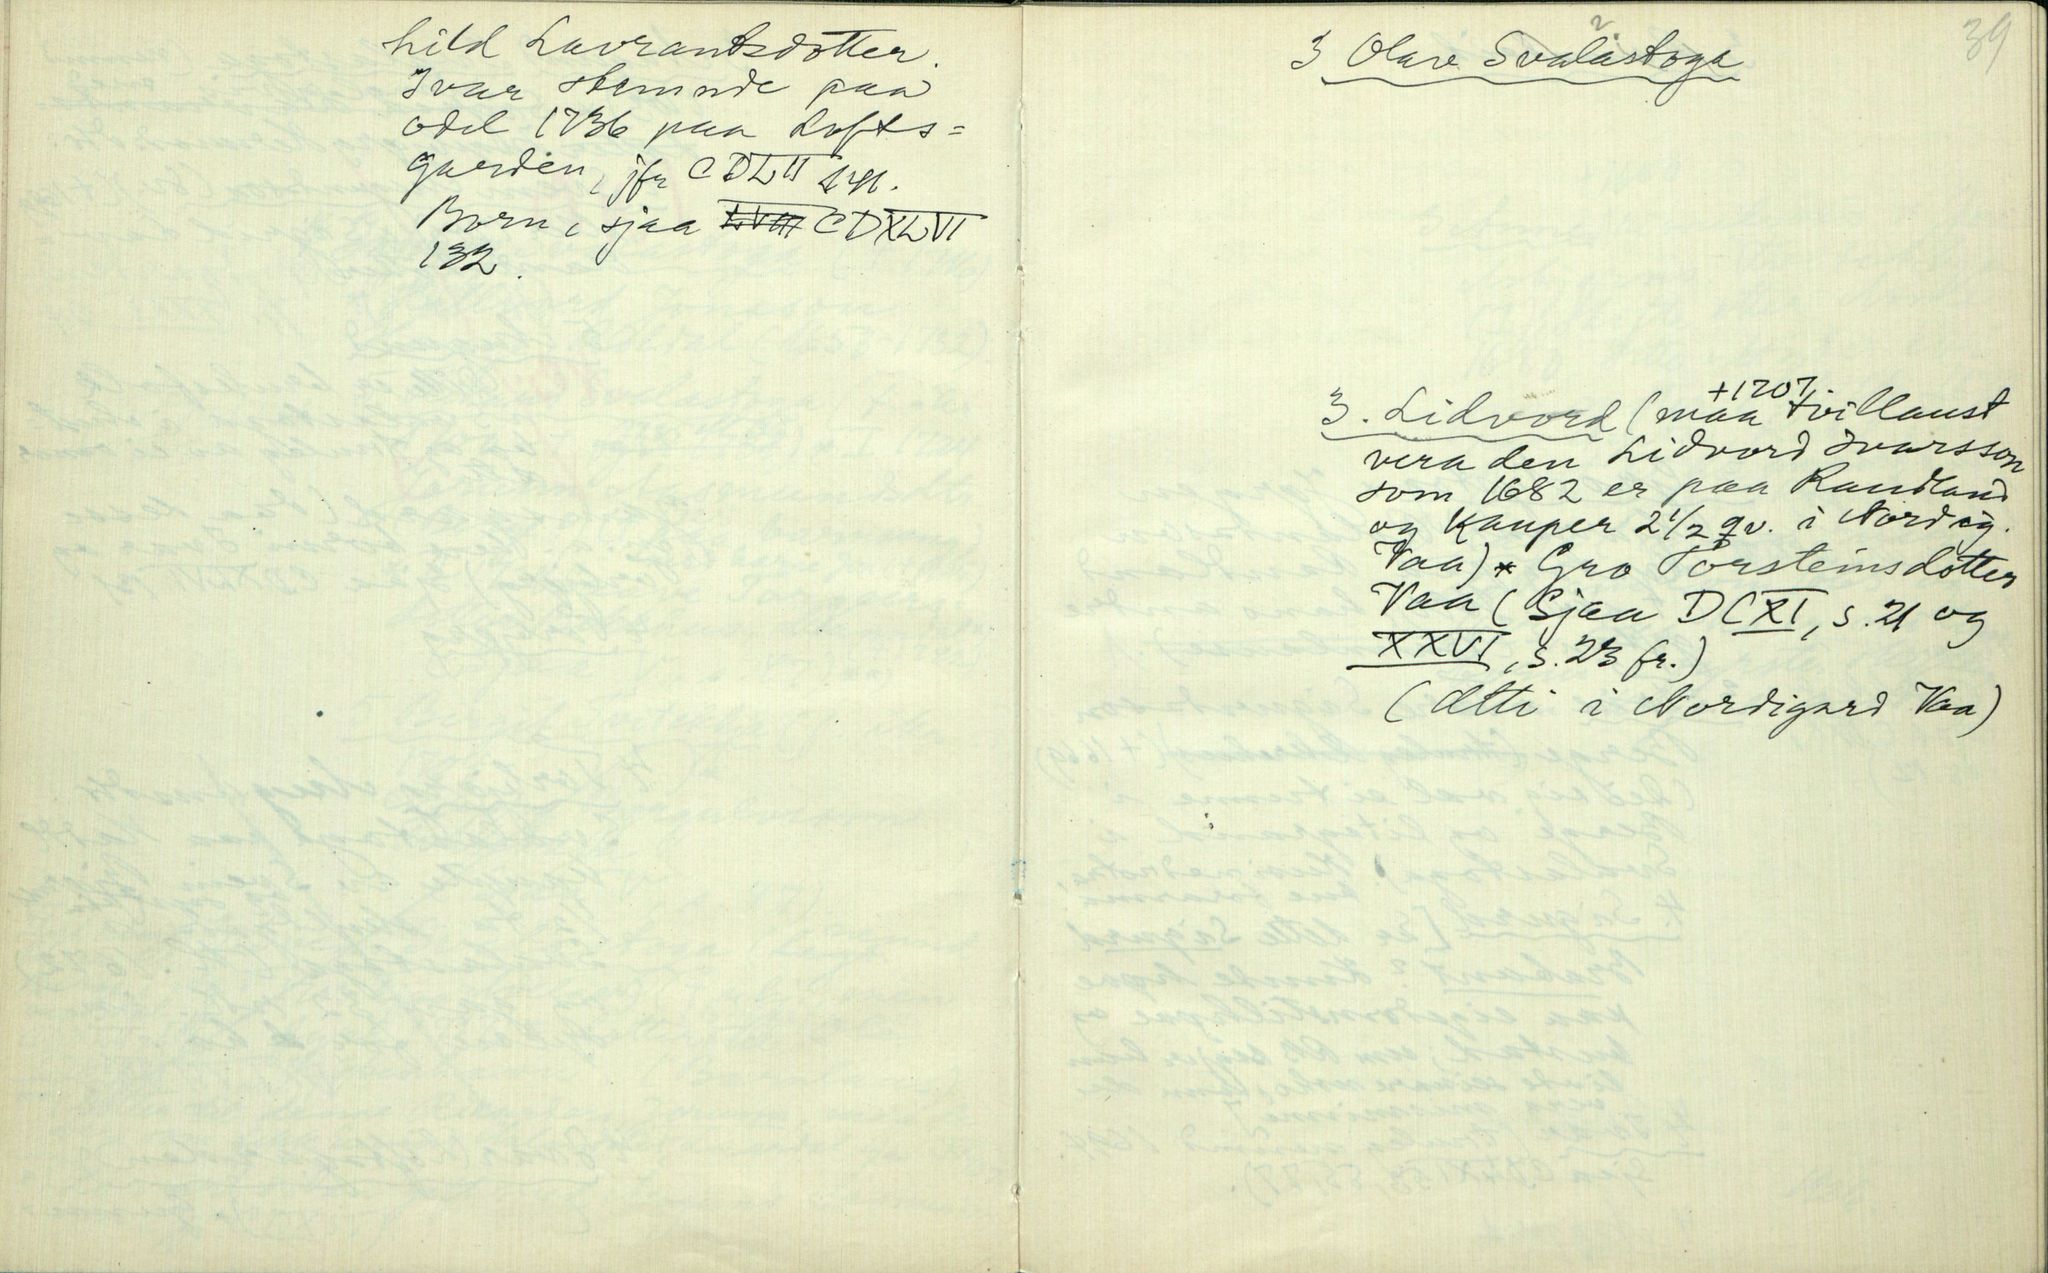 hild Lavrantsdotter.
Ivar stemnde paa
odel 1736 paa Lofts=
garden, jfr CDLII
Born, sjaa LVIII CDXLVI
132.
39
2
3 Olav Svalastoga
+1707
3. Lidvord (maa tvillaust
vera den Lidvord Ivarsson
som 1682 er paa Raudland
og Kauper 2 1/2 qv. i Nordig.
Vaa) * Gro Torsteinsdotter
Vaa (Sjaa DCXI, s. 21 og
XXVI, s. 23 fr.)
(Atti i Nordigard Vaa)